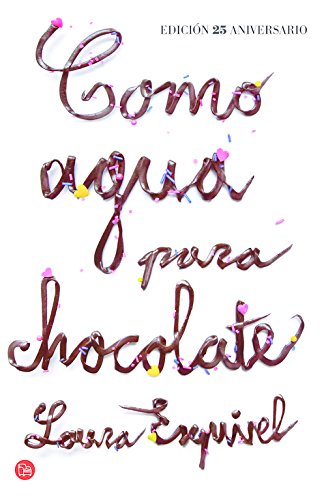 EDICIÓN 25 ANIVERSARIO
Como
agua
para
chocolate
Laura Esquivel